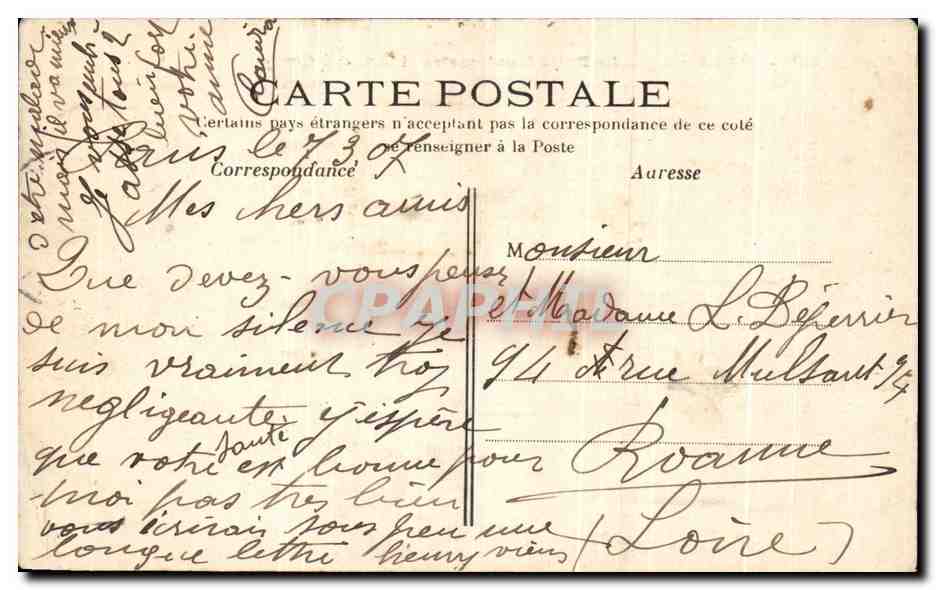 CARTE POSTALE
Certains pays étrangers n'acceptent pas la correspondance de ce coté
se renseigner à la Poste
Correspondance
Adresse
Paris le 7 3 07
Mes chers amis
Que devez-vous pensez
de mon silence je
suis vraiment trop
negligeante j'espère
que votre santé est bonne pour
moi pas tres bien
vous ecrirais sous peu une
longue lettre henry viens
d'etre malade
mais il va mieux
Je vous embrasse
tous 2
bien fort
votre
amie
Monsieur
et Madame L. Béperrier
94 rue Mulsant 94
Roanne
(Loire)
CPAPHIL